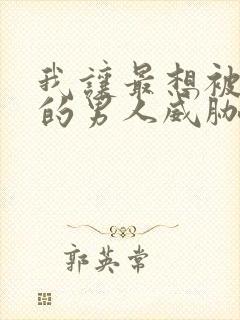 我让最想被
的男人威胁
郭英常